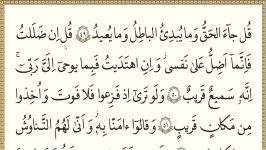 قُل جاءَ الحَقُّ وَما يُبدِئُ الباطِلُ وَما يُعيدُ ﴿٤٩﴾ قُل إِن ضَلَلتُ
فَإِنَّما أَضِلُّ عَلى نَفسى وَإِنِ اهتَدَيتُ فَبِما يوحى إِلَىَّ رَبّى
إِنَّهُ سَميعٌ قَريبٌ ﴿٥٠﴾ وَلَو تَرى إِذ فَزِعوا فَلا فَوتَ وَأُخِذوا
مِن مَكانٍ قَريبٍ ﴿٥١﴾ وَقالوا ءامَنّا بِهِ وَأَنّى لَهُمُ التَّناوُشُ